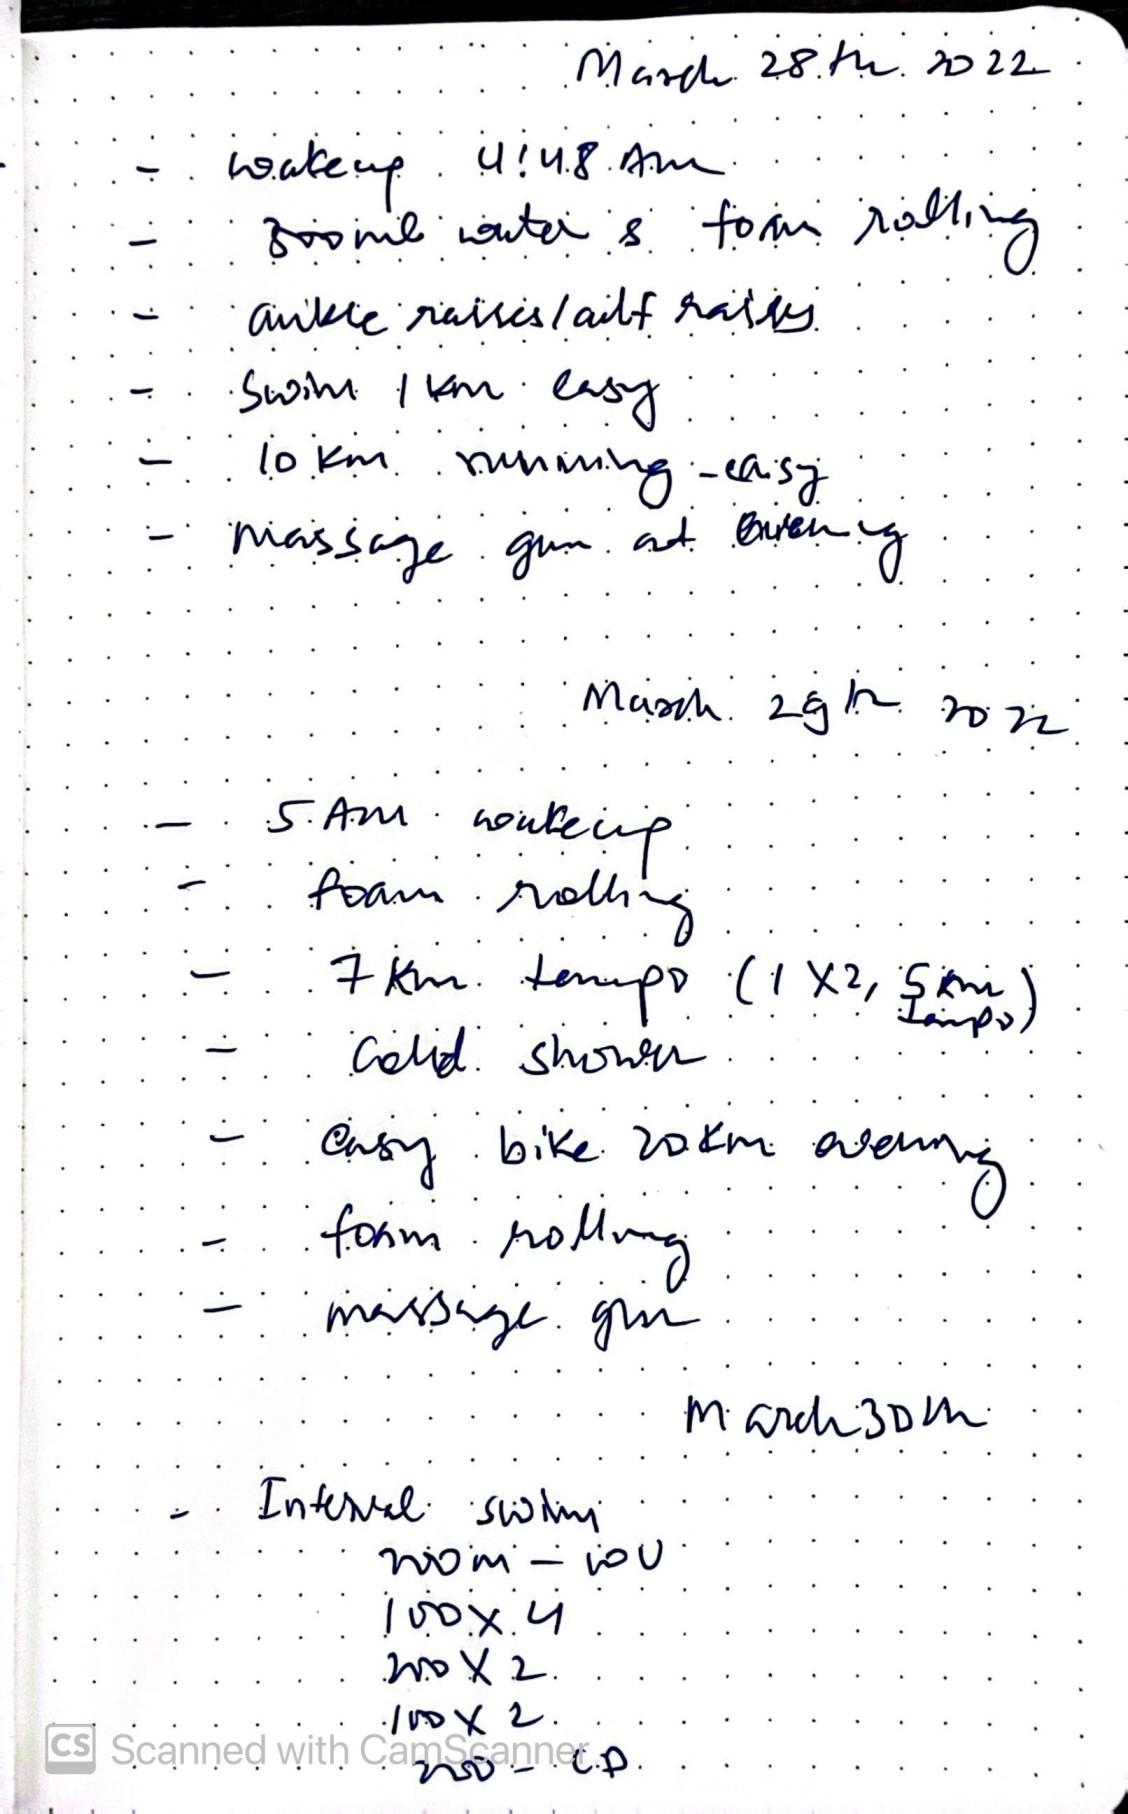 March 28th 2022
- wakeup 4:48 Am
- 300ml water & foam rolling
- ankle raises/calf raises
- Swim 1 km easy
- 10 km running - easy
- massage gun at evening
March 29th 2022
- 5 Am wakeup
- foam rolling
- 7 Km tempo (1 X 2, 5 km
Tempo)
- Cold shower
- easy bike 20 km evening
- foam rolling
- massage gun
March 30th
- Interval swim
200m - WU
100 X 4
200 X 2
100 X 2
200 - C.D.
CS Scanned with CamScanner